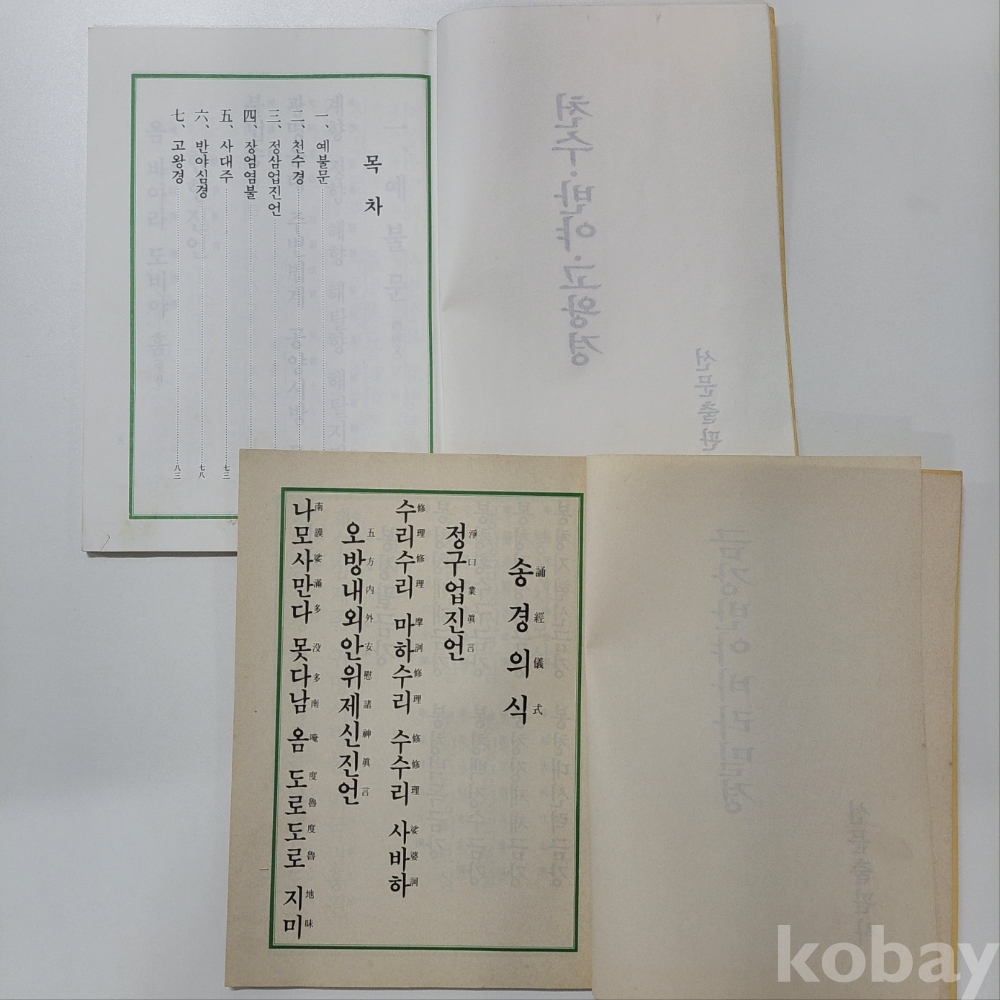 천수·반야·고왕경
선문출판
목차
一、예불문
二、천수경
三、정삼업진언
四、장엄염불
五、사대주 七三
六、반야심경 七八
七、고왕경 八三
금강반야바라밀경
선문출판사
송경의식
誦經儀式
정구업진언
淨口業眞言
수리수리 마하수리 수수리 사바하
修理修理 摩訶修理 修修理 娑婆訶
오방내외안위제신진언
五方內外安慰諸神眞言
나모사만다 못다남 옴 도로도로 지미
南謨娑滿多 没多南 唵 度魯度魯 地味
一
kobay